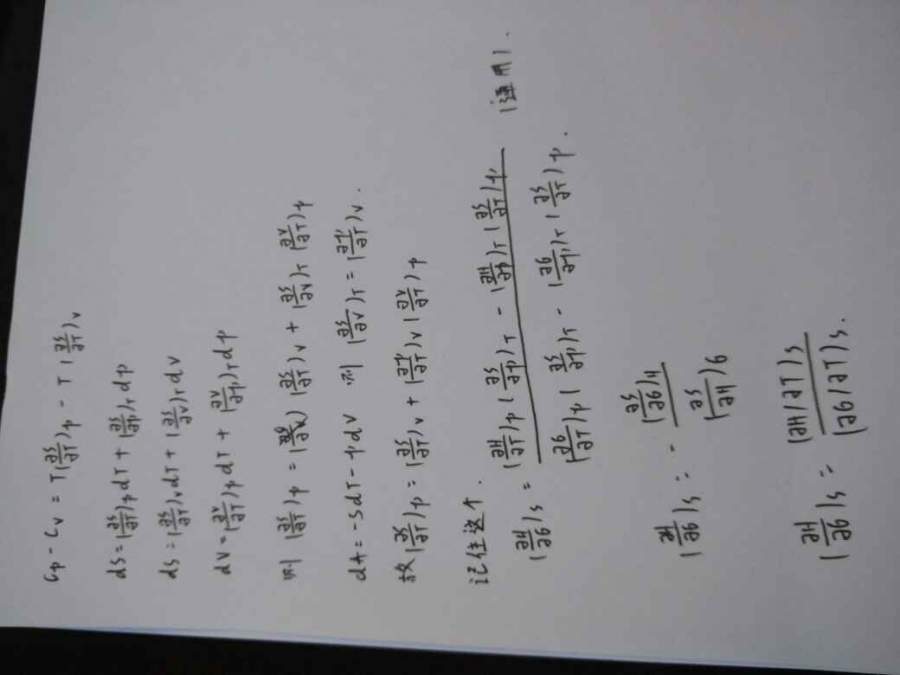 Cp - Cv = T(∂S/∂T)p - T(∂S/∂T)v
dS = (∂S/∂T)p dT + (∂S/∂p)T dp
dS = (∂S/∂T)v dT + (∂S/∂V)T dV
dV = (∂V/∂T)p dT + (∂V/∂p)T dp
则 (∂S/∂T)p = (∂S/∂T)v + (∂S/∂V)T (∂V/∂T)p
dA = -SdT - pdV 则 (∂S/∂V)T = (∂p/∂T)v.
故 (∂S/∂T)p = (∂S/∂T)v + (∂p/∂T)v (∂V/∂T)p
记住这个.
(∂H/∂G)s = [(∂H/∂T)p (∂S/∂p)T - (∂H/∂p)T (∂S/∂T)p] / [(∂G/∂T)p (∂S/∂p)T - (∂G/∂p)T (∂S/∂T)p]. (通用).
(∂H/∂G)s = - (∂S/∂G)H / (∂S/∂H)G
(∂H/∂G)s = (∂H/∂T)s / (∂G/∂T)s.